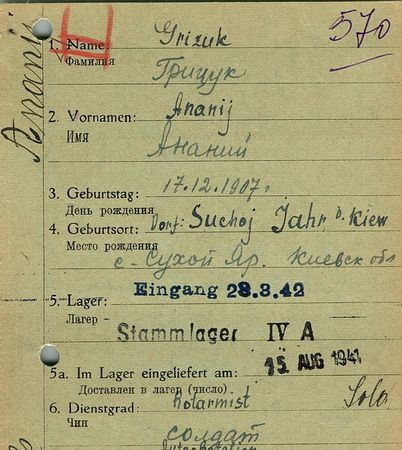 570
Ananij
1. Name: Grizuk
Фамилия
Грицук
2. Vornamen: Ananij
Имя
Ананий
3. Geburtstag: 17.12.1907г
День рождения
4. Geburtsort: Dorf. Suchoj Jahr, b. Kiew
Место рождения
с. Сухой Яр. Киевск обл
Eingang 28.3.42
5. Lager:
Лагер
Stammlager IV A
15. AUG 1941
5a. Im Lager eingeliefert am:
Доставлен в лагер (число)
6. Dienstgrad: Rotarmist
Чин
солдат